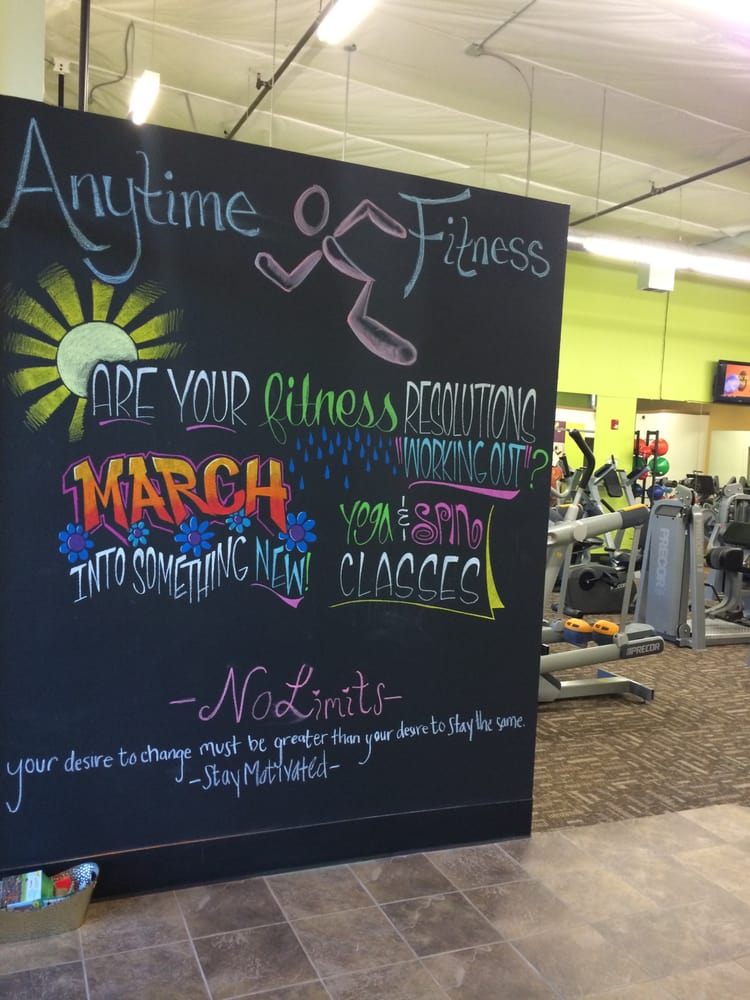 Anytime Fitness
ARE YOUR fitness RESOLUTIONS
"WORKING OUT"?
MARCH
INTO SOMETHING NEW!
YOGA & SPIN
CLASSES
-No Limits-
your desire to change must be greater than your desire to stay the same.
-Stay Motivated-
PRECOR
PRECOR